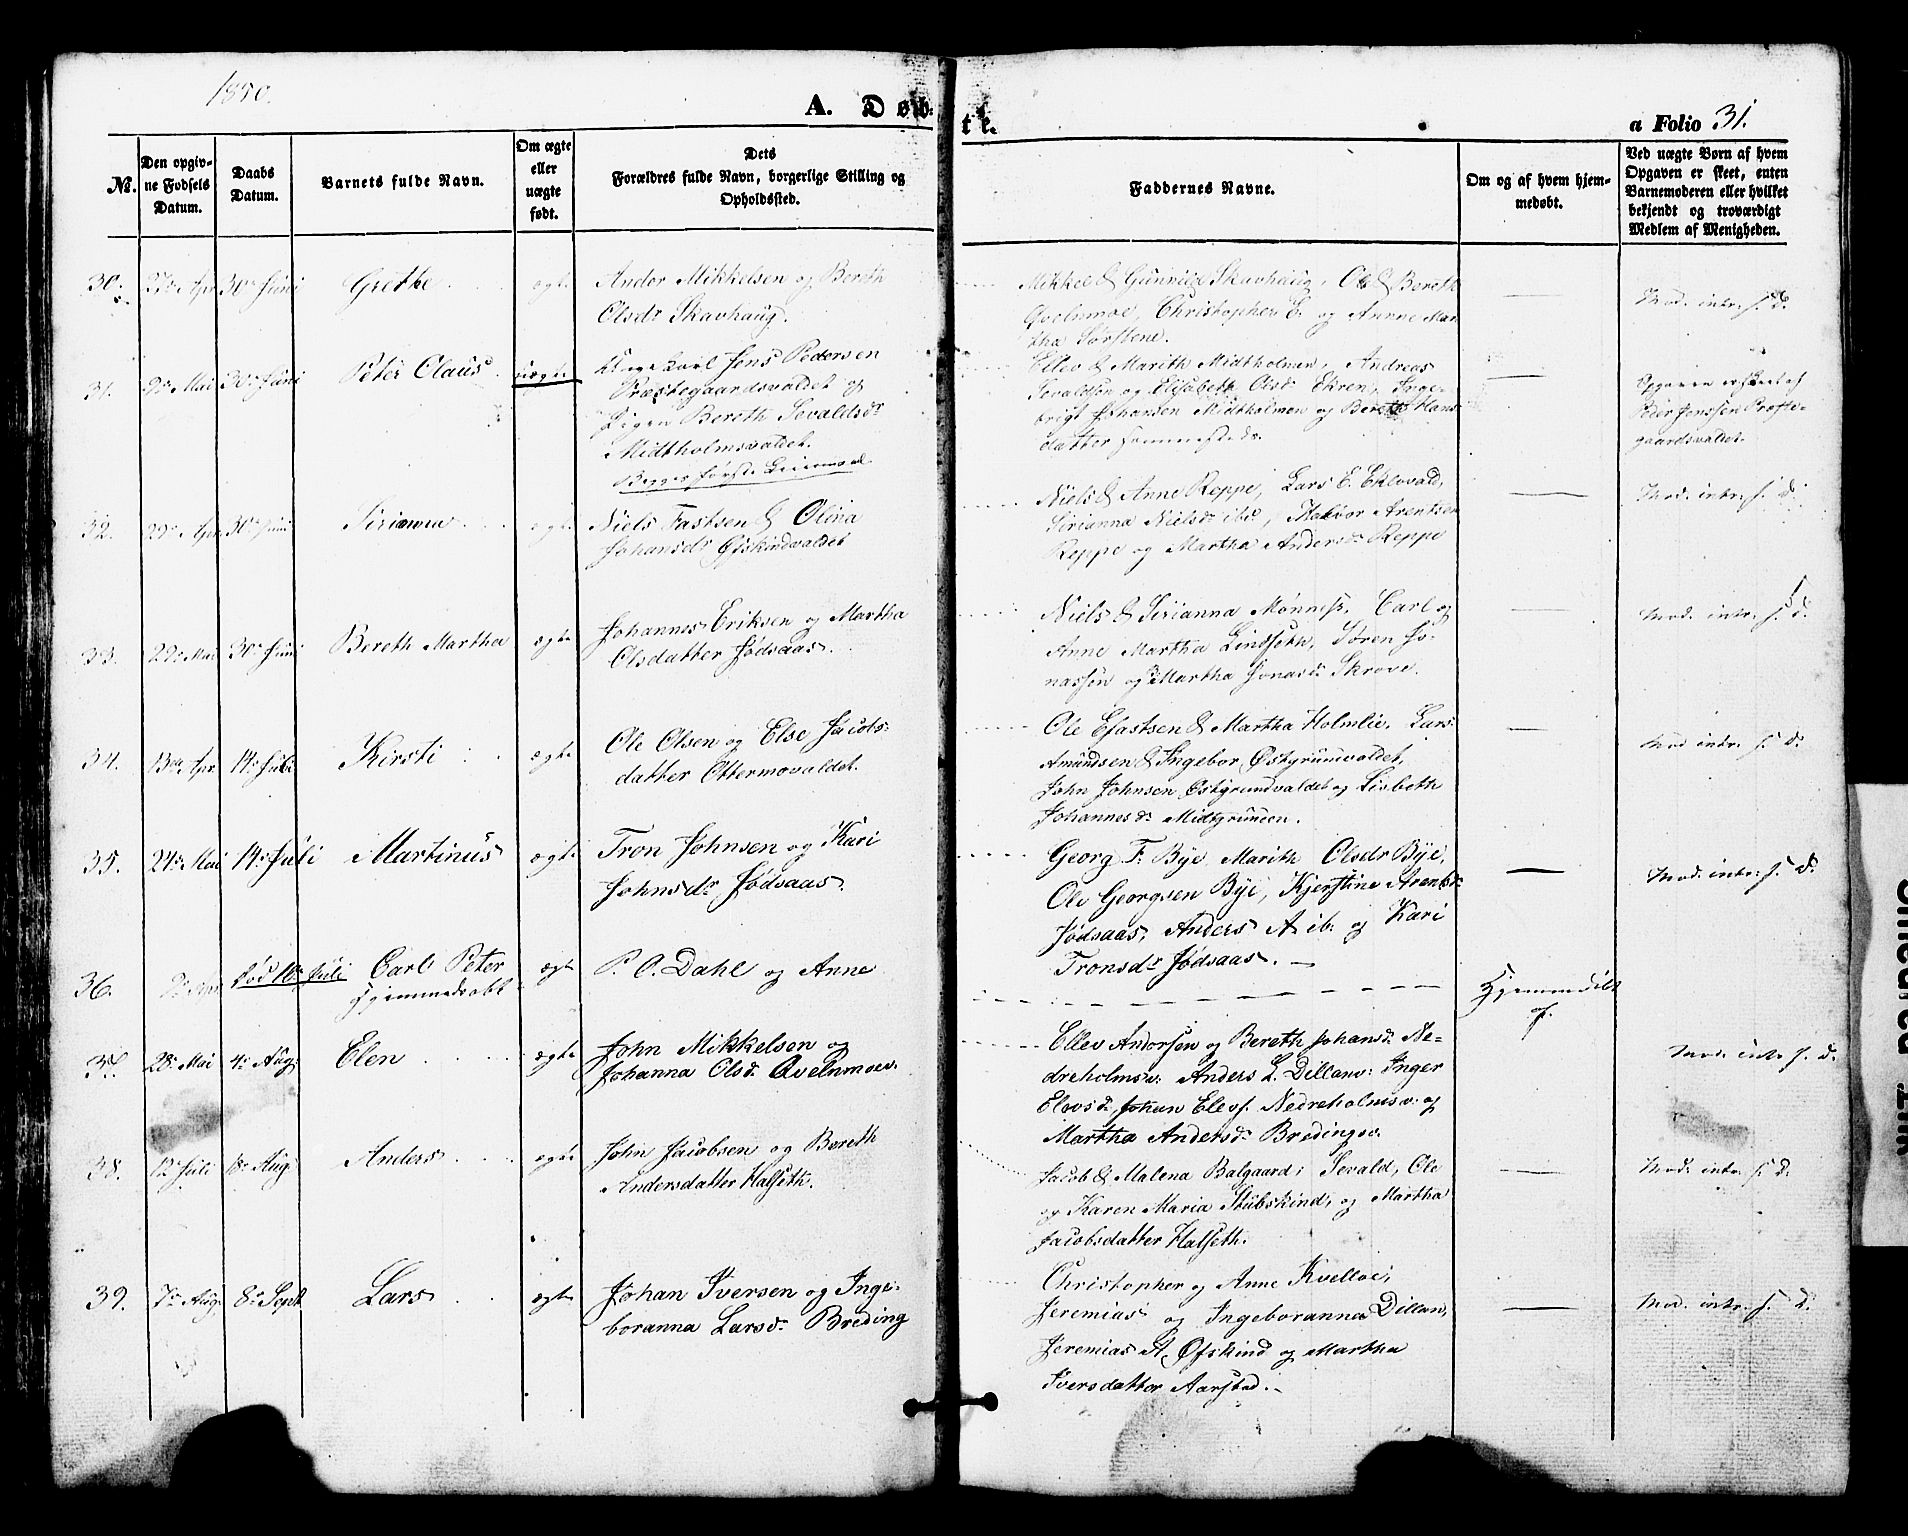 1850.
A. Døb-
te.
a Folio 31.
No.
Den opgiv-
ne Fødsels
Datum.
Daabs
Datum.
Barnets fulde Navn.
Om ægte
eller
uægte
født.
Dets
Forældres fulde Navn, borgerlige Stilling og
Opholdssted.
Faddernes Navne.
Om og af hvem hjem-
medøbt.
Ved uægte Børn af hvem
Opgaven er skeet, enten
Barnemoderen eller hvilket
bekjendt og troværdigt
Medlem af Menigheden.
30. 27de Apr 30te Juni Grethe ægte
Andor Mikkelsen og Bereth
Olsdr Skavhaug.
Mikkel & Gunnild Skavhaug, Ole & Bereth
Qvelnmoe, Christopher E. og Annne Mar
tha Sørstene.
Mod. intr. f. d.
31. 9de Mai 30te Juni Peter Claus uægte
Ungekarl Jens Pedersen
Præstegaardsvaldet og
Pigen Bereth Sevaldsdr
Midtholmsvaldet.
Begges første Leiermaal
Ellev & Marith Midtholmen, Andreas
Sevaldsen og Elisabeth Olsdr Ekren, Inge-
brigt Johansen Midtholmen og Bereth Hans
datter sammesteds.
Opgaven er skeet af
Peder Jenssen Præste-
gaardsvaldet.
32. 29de Apr 30te Juni Sirianna ægte
Niels Fastsen & Olina
Johansdr Øfskindvaldet
Niels & Anne Reppe, Lars E. Eklovald,
Sirianna Nielsdr ibd, Halvor Arentsen
Reppe og Martha Andersdr Reppe
Mod. intr. f. d.
33. 29de Mai 30te Juni Bereth Martha ægte
Johannes Eriksen og Martha
Olsdatter Jødsaas.
Niels & Sirianna Mønnes, Carl og
Anne Martha Lindseth, Søren Jo-
nassen og Martha Jonasdr Skrove.
Mod. intr. f. d.
34. 13de Apr 14de Juli Kirsti ægte
Ole Olsen og Else Jacobs-
datter Ottermovaldet.
Ole Efastsen & Martha Holmlie, Lars
Amundsen & Ingebor Østgrunvaldet,
John Johnsen Østgrundvaldet og Lisbeth
Johannesdr Midtgrunden.
Mod intr. f. d.
35. 24de Mai 14de Juli Martinus ægte
Tron Johnsen og Kari
Johnsdr Jødsaas.
Georg F. Bye, Marith Olsdr Bye,
Ole Georgsen Bye, Kjerstine Arentsdr
Jødsaas, Anders A. ib. og Kari
Tronsdr Jødsaas.
Mod. intr. f. d.
36. død 10de Juli Carl Peter ægte
hjemmedøbt
P. O. Dahl og Anne
Hjemmedøbt
af.
37. 28de Mai 4de Aug. Elen ægte
John Mikkelsen og
Johanna Olsdr Qvelnmoev.
Ellev Andorsen og Bereth Johansdr Ne-
dreholmsv. Anders L. Dillanv. Inger
Elovsdr, Johan Elevs. Nedreholmsv. og
Martha Andersdr Bredingsv.
Mod. intr f. d.
38. 12te Juli 18de Aug. Anders ægte
John Jacobsen og Bereth
Andersdatter Halseth.
Jacob & Malena Balgaard; Sevald, Ole
og Karen Maria Stubskind, og Martha
Jacobsdatter Halseth.
Mod. intr. f. d.
39. 7de Aug. 8de Sept Lars ægte
Johan Iversen og Inge-
boranna Larsdr Breding
Christopher og Anne Kvelloe,
Jeremias og Ingeboranna Dillan,
Jeremias A. Øfskind og Martha
Iversdatter Aarstad.
Mod. intr. f. d.